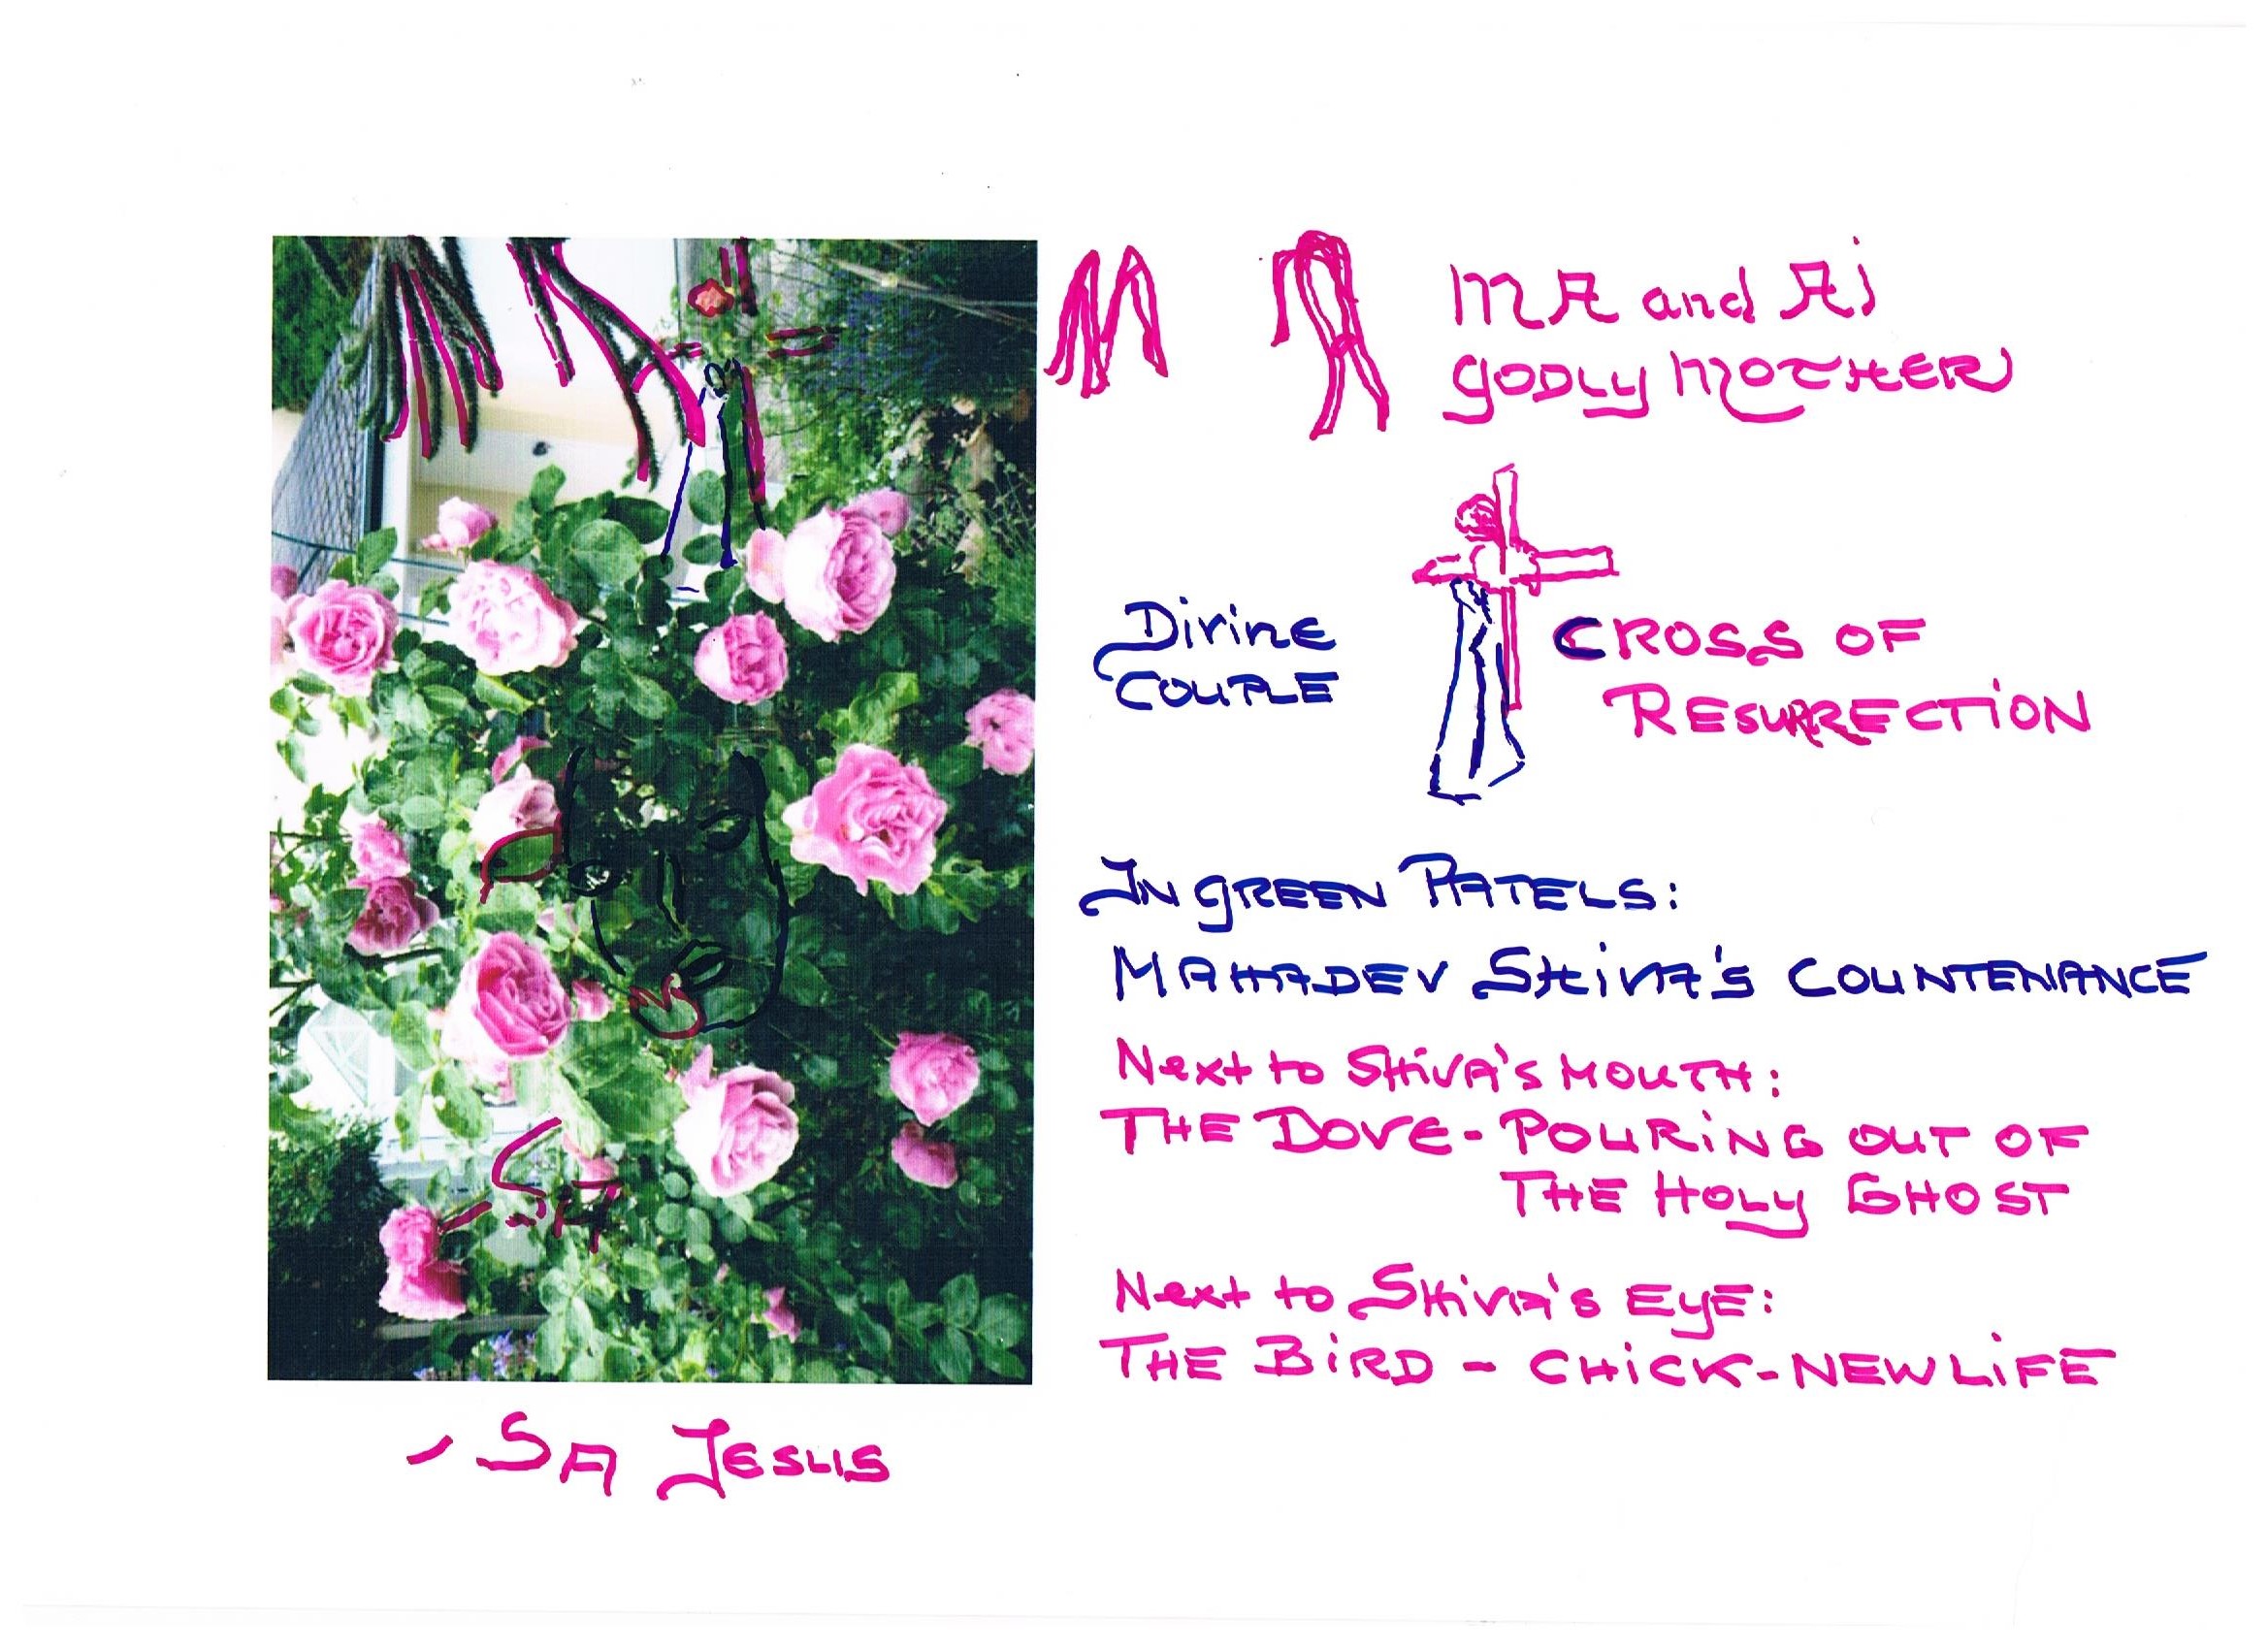 M A MA and Ai
GODLY MOTHER
Divine
COUPLE
CROSS OF
RESURRECTION
IN GREEN PATELS:
MAHADEV SHIVA'S COUNTENANCE
Next to SHIVA'S MOUTH:
THE DOVE - POURING OUT OF
THE HOLY GHOST
Next to SHIVA'S EYE:
THE BIRD - CHICK - NEW LIFE
SA
- SA JESUS